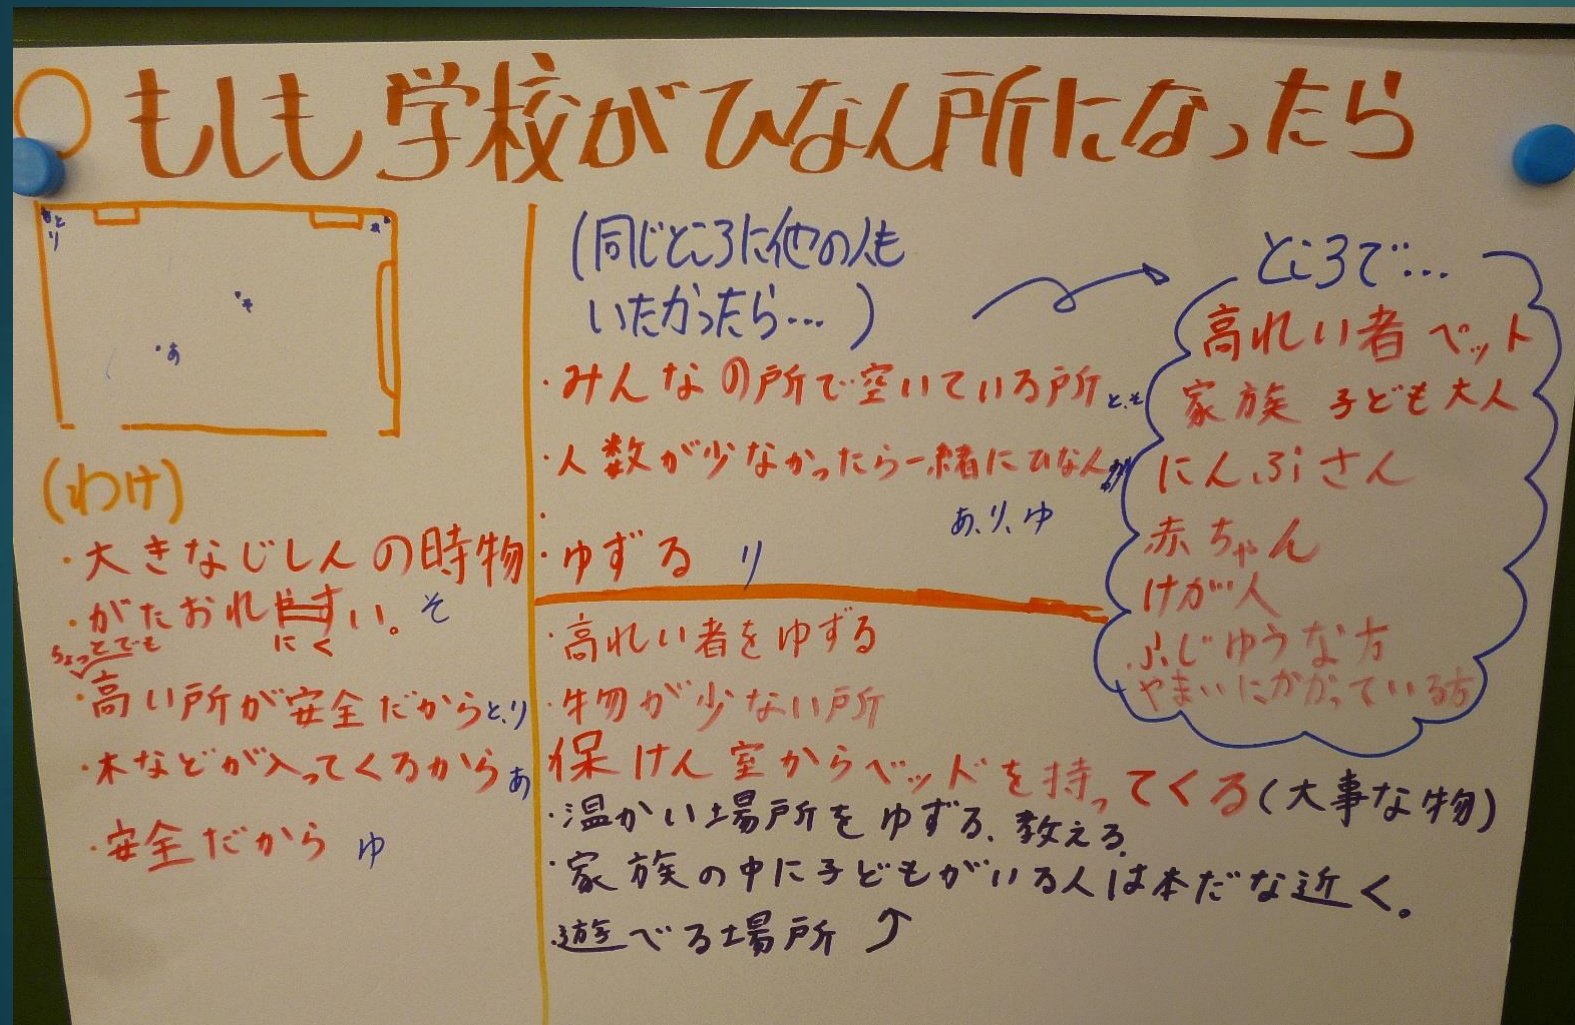 ○もしも学校がひなん所になったら
とり
そ
あ
(わけ)
・大きなじしんの時物
・がたおれやすい。そ
にく
ちょっとでも
・高い所が安全だからと、り
・木などが入ってくるからあ
・安全だから ゆ
(同じところに他の人も
いたかったら…)
・みんなの所で空いている所 と、そ
・人数が少なかったら一緒にひなん
あ、り、ゆ
・ゆずる り
・高れい者をゆずる
・物が少ない所
保けん室からベッドを持ってくる(大事な物)
・温かい場所をゆずる、教える。
・家族の中に子どもがいる人は本だな近く。
・遊べる場所 ⤴
ところで…
高れい者 ペット
家族 子ども 大人
にんぷさん
赤ちゃん
けが人
ふじゆうな方
やまいにかかっている方